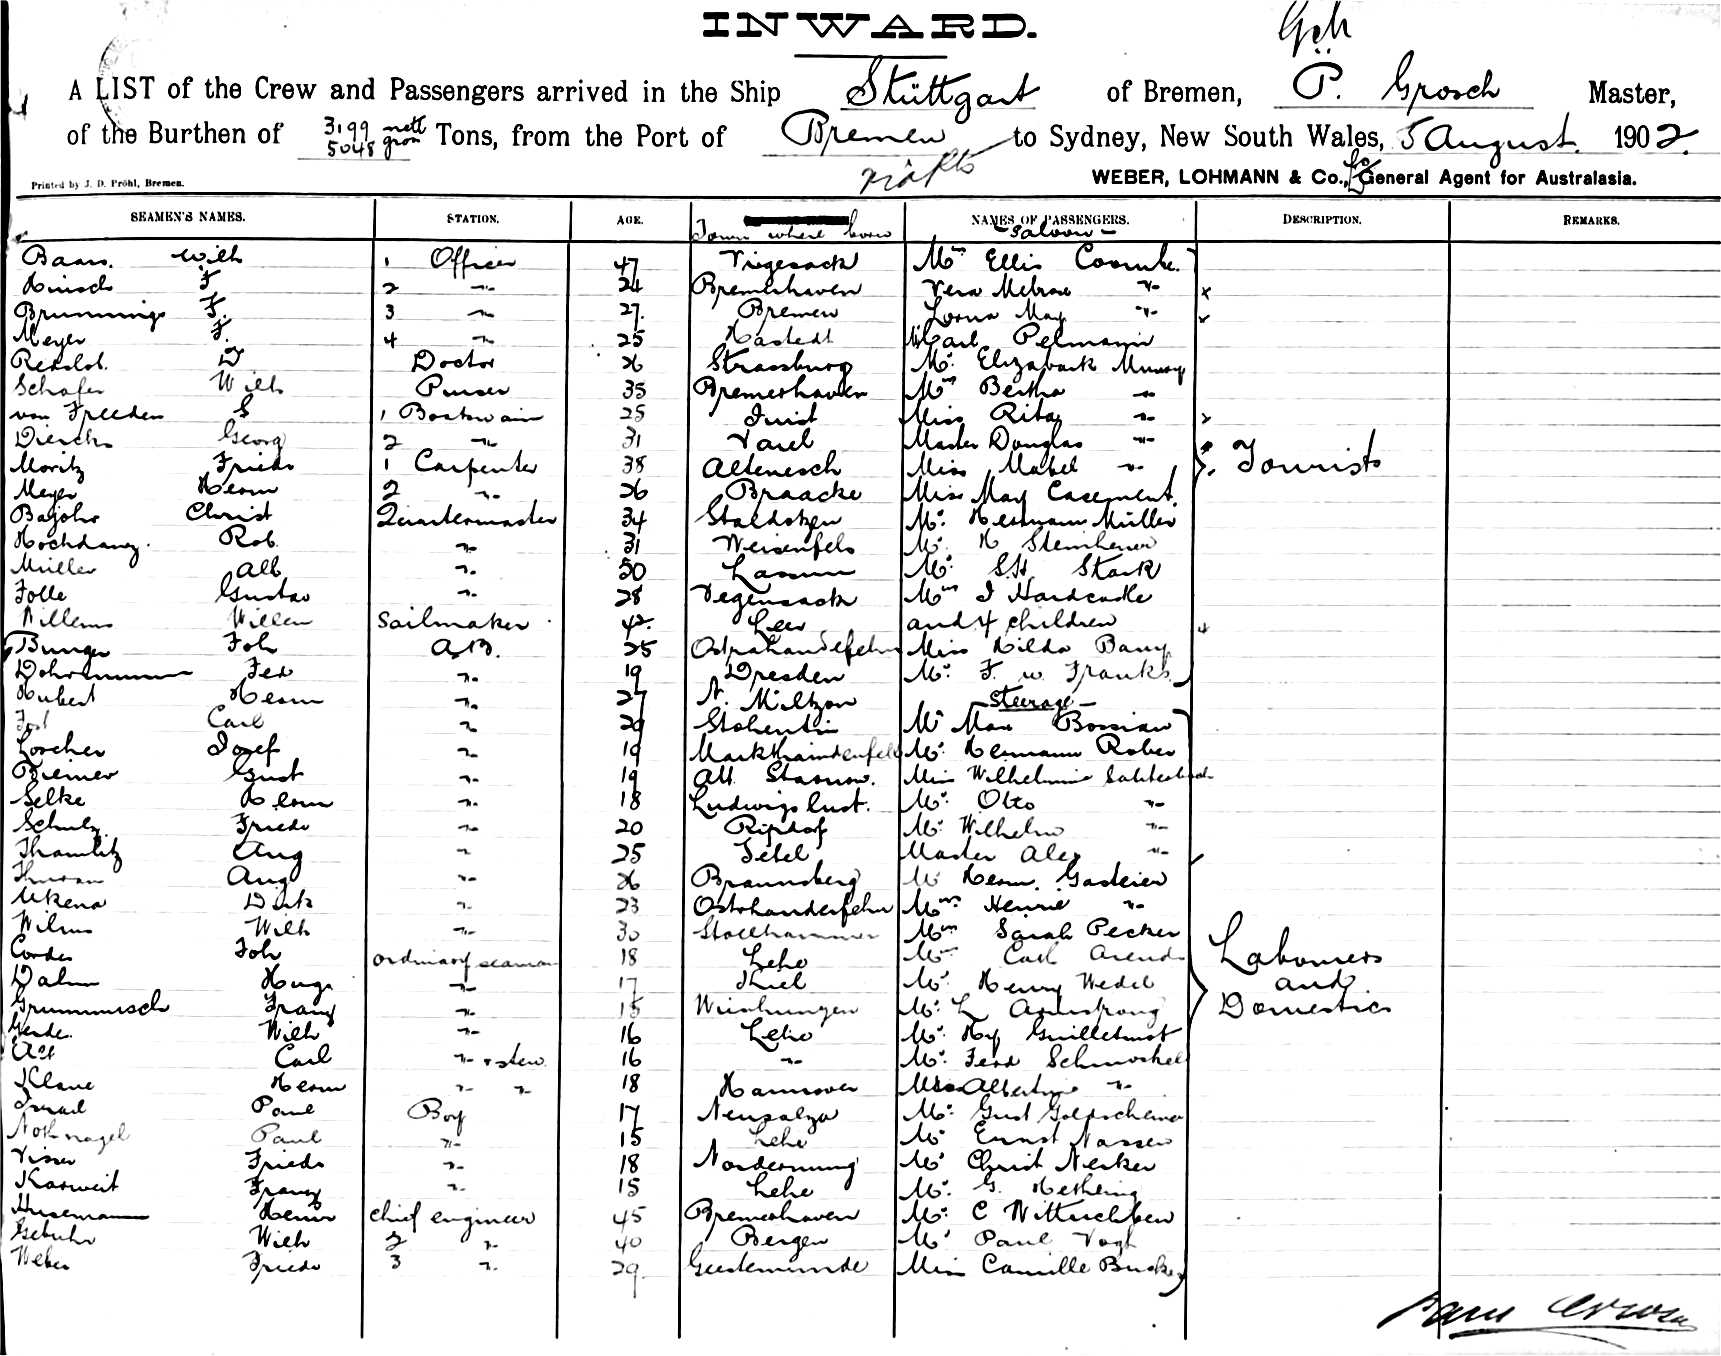 INWARD.
A LIST of the Crew and Passengers arrived in the Ship Stüttgart of Bremen, P. Grosch Master,
of the Burthen of 3199 nett 5048 gross Tons, from the Port of Bremen to Sydney, New South Wales, 5 August. 1902.
Printed by J. D. Pröhl, Bremen.
WEBER, LOHMANN & Co., General Agent for Australasia.
SEAMEN'S NAMES. STATION. AGE. Town where born NAMES OF PASSENGERS. DESCRIPTION. REMARKS.
Saloon
Baars. Wilh 1 Officer 47 Vegesack Mrs Ellis Coombe.
Hinsch F 2 -"- 24 Bremerhaven Vera Melrose -"- x
Brunnings F. 3 -"- 27. Bremen Lorna May -"- x
Meyer F. 4 -"- 25 Hastedt Carl Pelmann
Doctor 26 Strassburg Elizabeth Murray
Schafer Wilh Purser 35 Bremerhaven Mrs Bertha -"-
von Freeden S 1 Boatswain 25 Juist Miss Rita -"- x
Dierks Georg 2 -"- 31 Varel Master Douglas -"-
Moritz Friedr 1 Carpenter 38 Altenesch Miss Mabel -"- Tourists
Meyer Herm 2 -"- 26 Braacke Miss May Casement
Bajohr Christ Quartermaster 34 Mr. Hermann Müller
Rob. -"- 31 Weisenfels Mr. H
Müller Alb -"- 50 Lassan Mr. S.H. Stark
Folle Gustav -"- 28 Vegensack Mrs J Hardcastle
Willems Willem Sailmaker 42. Leer and 4 children
Bunger Joh A.B. 25 Miss Hilda Barry
Ferd -"- 19 Dresden Mr. F. W. Franks
Hubert Herm -"- 27 N. Miltzow Steerage
Carl -"- 20 Stohentin Mr Max
Lorcher Josef -"- 19 Mr. Hermann Rober
Bremer Gust -"- 19 Alt Miss Wilhelmine
Selke Herm -"- 18 Ludwigslust. Mr. Otto -"-
Schulz Friedr -"- 20 Mr. Wilhelm -"-
Thamlitz Aug -"- 25 Zetel Master Alex -"-
Aug -"- 26 Braunsberg Mr Herm.
Ukena Dirk -"- 23 Ostrhanderfehn Mrs Henrie -"-
Wilms Wilh -"- 30 Stollhammer Mrs Sarah Pecker
Cordes Joh ordinary seaman 18 Lehe Carl Arend Labourers
Dahm Hugo -"- 17 Kiel Mr. Henry Wedel and
Franz -"- 15 Mr. L Armstrong Domestics
Gerde. Wilh -"- 16 Lehe Mr. Hy
Carl -"- 16 -"- Mr. Ferd Schmockel
Klane Herm -"- -"- 18 Hannover Albertine -"-
Paul Boy 17 Neusalza Mr. Gust
Nothnagel Paul -"- 15 Lehe Mr Ernst Nassen
Visser Friedr -"- 18 Mr Christ Nerker
Karweit Franz -"- 15 Lehe Mr. G. Hethering
Husemann Herm chief engineer 45 Bremerhaven Mr. C
Gebuhr Wilh 2 -"- 40 Bergen Mr Paul Vogt
Weber Friedr 3 -"- 29. Geestemunde Miss Camille